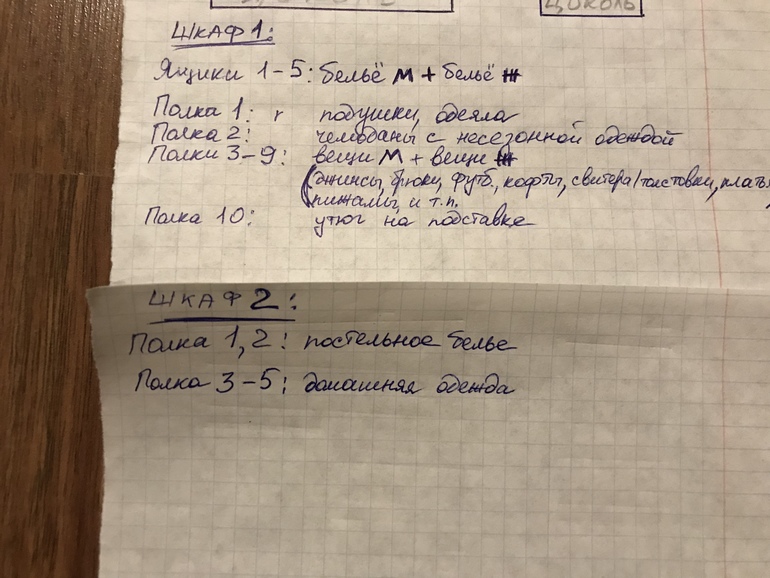 ЦОКОЛЬ
ШКАФ 1:
Ящики 1-5: бельё М + бельё Ж
Полка 1: г подушки, одеяла
Полка 2: чемоданы с несезонной одеждой
Полки 3-9: вещи М + вещи Ж
(джинсы, брюки, футб., кофты, свитера/толстовки, плать
пижамы, и т.п.
Полка 10: утюг на подставке
ШКАФ 2:
Полка 1,2: постельное белье
Полка 3-5: домашняя одежда